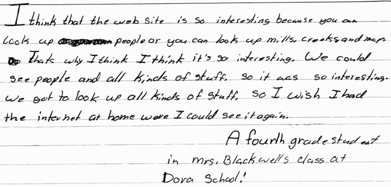 I think that the web site is so interesting because you can
look up people or you can look up mills, creeks, and maps
Thats why I think I think it's so interesting. We could
see people and all kinds of stuff, so it was so interesting.
We got to look up all kinds of stuff, so I wish I had
the internet at home were I could see it again.
A fourth grade student
in mrs. Blackwell's class at
Dora School!